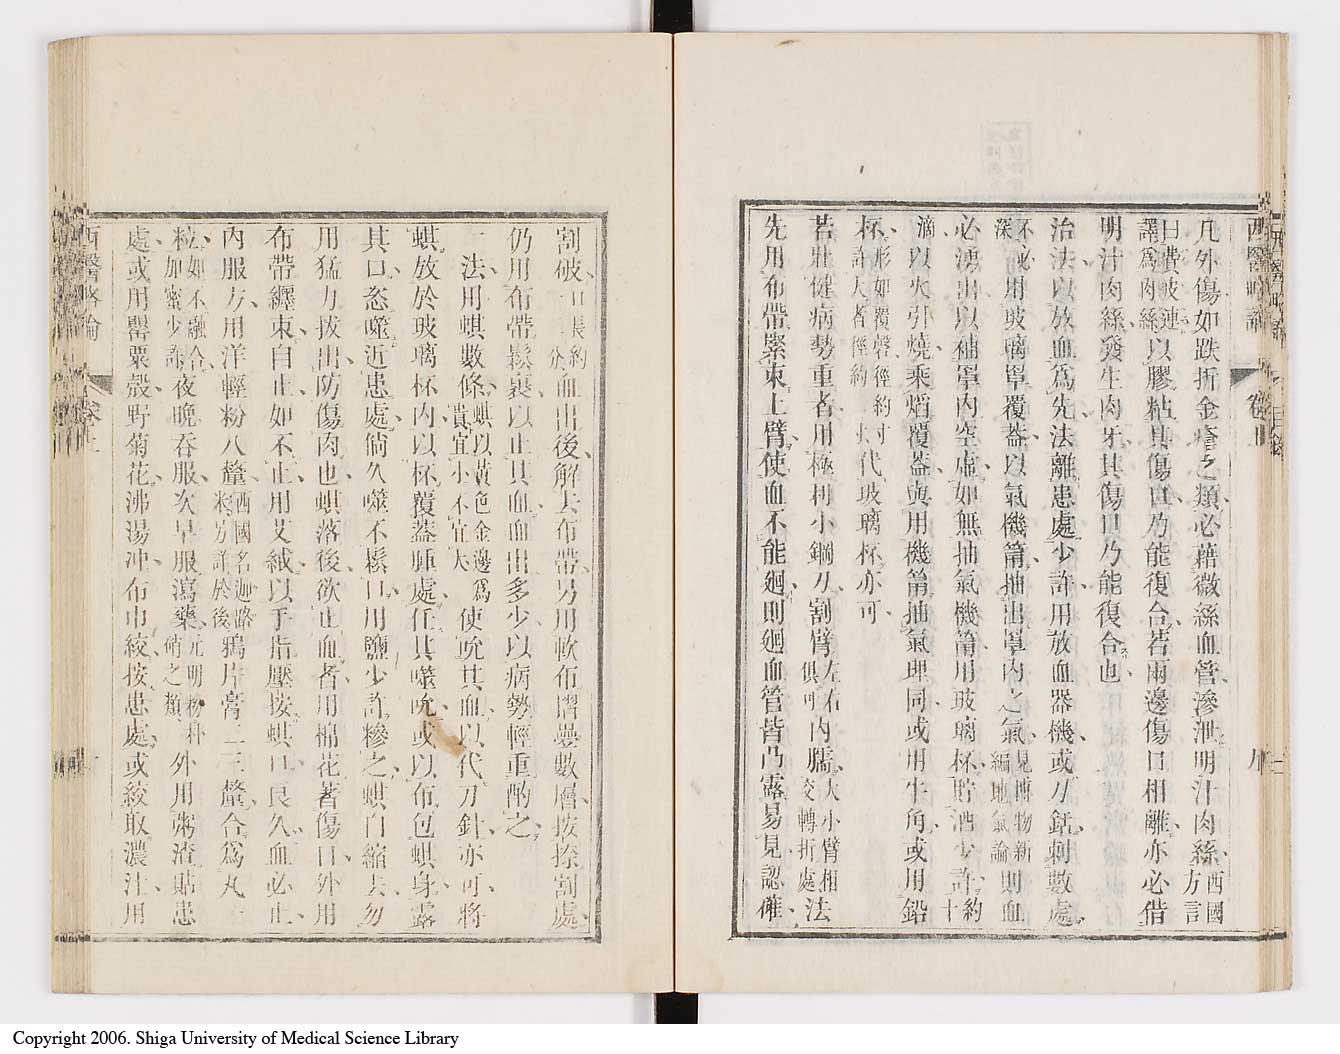 凡外傷如跌折金瘡之類必藉微絲血管滲泄明汁肉絲西國方言
曰費彼連譯爲肉絲以膠粘其傷口乃能復合若兩邊傷口相離亦必借
明汁肉絲發生肉牙其傷口乃能復合也
治法以放血爲先法離患處少許用放血器機或刀鈺刺數處
不必深用玻璃罩覆葢以氣機筩抽出罩內之氣見博物新編地氣論則血
必湧出以補罩內空虛如無抽氣機筩用玻璃杯貯酒少許約十
滴以火引燒乘熖覆葢與用機筩抽氣理同或用牛角或用鉛
杯形如覆磬徑約寸許大者徑約二寸代玻璃杯亦可
若壯健病勢重者用極利小鋼刀割臂左右俱可內臑大小臂相交轉折處法
先用布帶緊束上臂使血不能迴則迴血管皆凸露易見認確
西醫略論
卷中
割破口長約二分血出後解去布帶另用軟布摺疊數層按揜割處
仍用布帶鬆裹以止其血血出多少以病勢輕重酌之
一法用蜞數條蜞以黃色金邊爲貴宜小不宜大使吮其血以代刀針亦可將
蜞放於玻璃杯內以杯覆葢腫處任其噬吮或以布包蜞身露
其口忞噬近患處倘久噬不鬆口用鹽少許糝之蜞自縮去勿
用猛力拔出防傷肉也蜞落後欲止血者用棉花著傷口外用
布帶纏束自止如不止用艾絨以手指壓按蜞口良久血必止
內服方用洋輕粉八釐西國名迦路米方詳於後鴉片膏二三釐合爲丸一
粒如不融合加蜜少許夜晚吞服次早服瀉藥元明粉朴硝之類外用粥渣貼患
處或用罌粟殼野菊花沸湯冲布巾絞按患處或絞取濃汁用
西醫略論
Copyright 2006. Shiga University of Medical Science Library